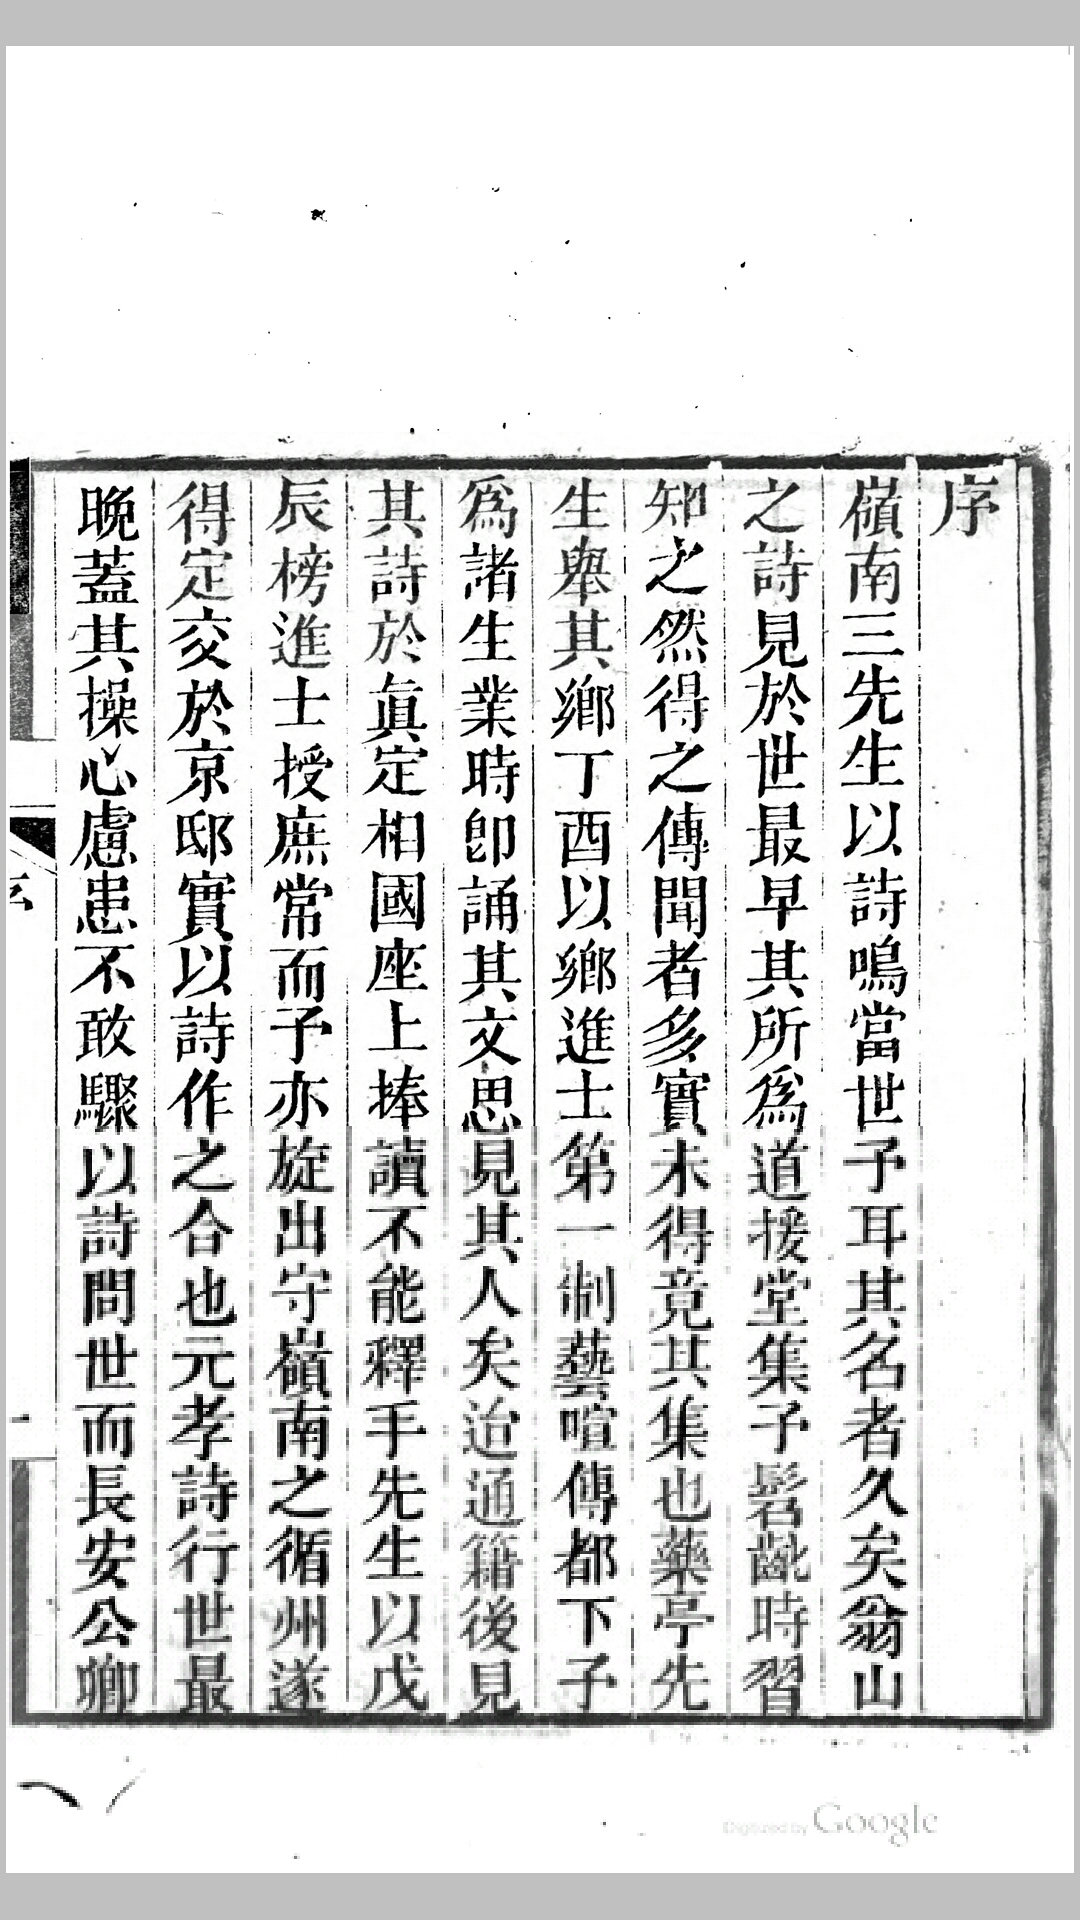 序
嶺南三先生以詩鳴當世予耳其名者久矣翁山
之詩見於世最早其所爲道援堂集予髫齔時習
知之然得之傳聞者多實未得竟其集也藥亭先
生舉其鄉丁酉以鄉進士第一制藝喧傳都下予
爲諸生業時卽誦其文思見其人矣迨通籍後見
其詩於眞定相國座上捧讀不能釋手先生以戊
辰榜進士授庶常而予亦旋出守嶺南之循州遂
得定交於京邸實以詩作之合也元孝詩行世最
晚蓋其操心慮患不敢驟以詩問世而長安公卿
Digitized by Google